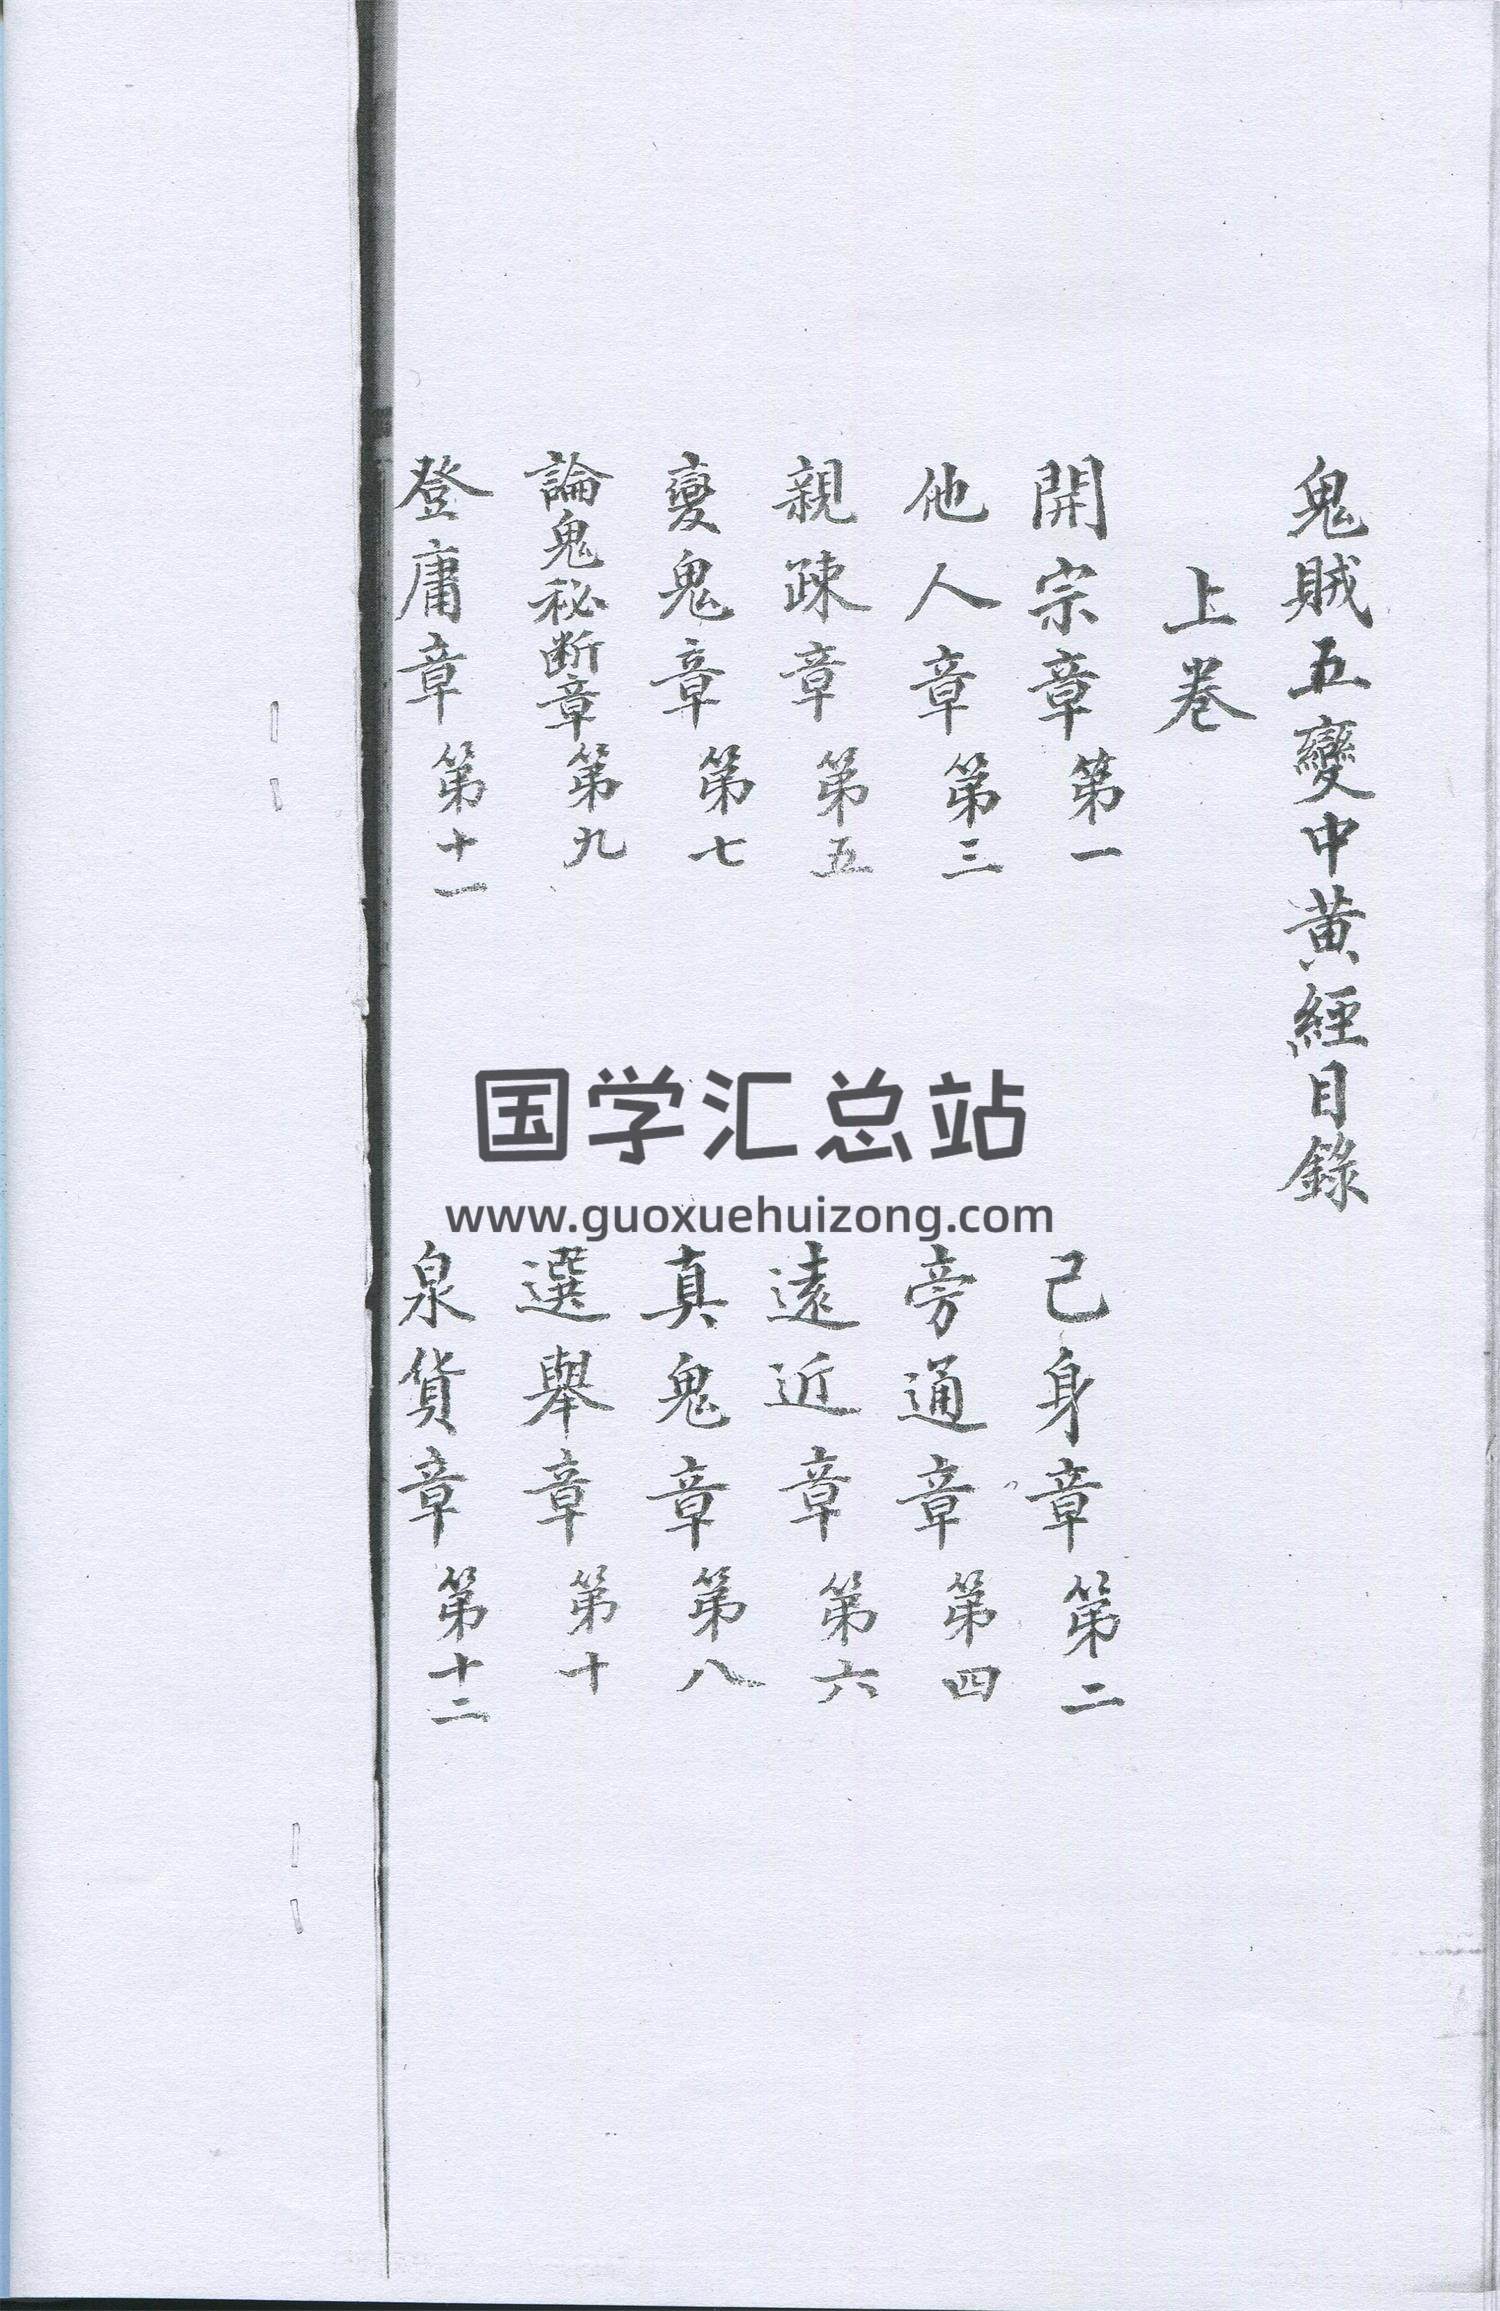 鬼賊五變中黄經目錄
上卷
開宗章第一
己身章第二
他人章第三
旁通章第四
親疎章第五
遠近章第六
變鬼章第七
真鬼章第八
論鬼秘断章第九
選舉章第十
登庸章第十一
泉貨章第十二
国学汇总站
www.guoxuehuizong.com